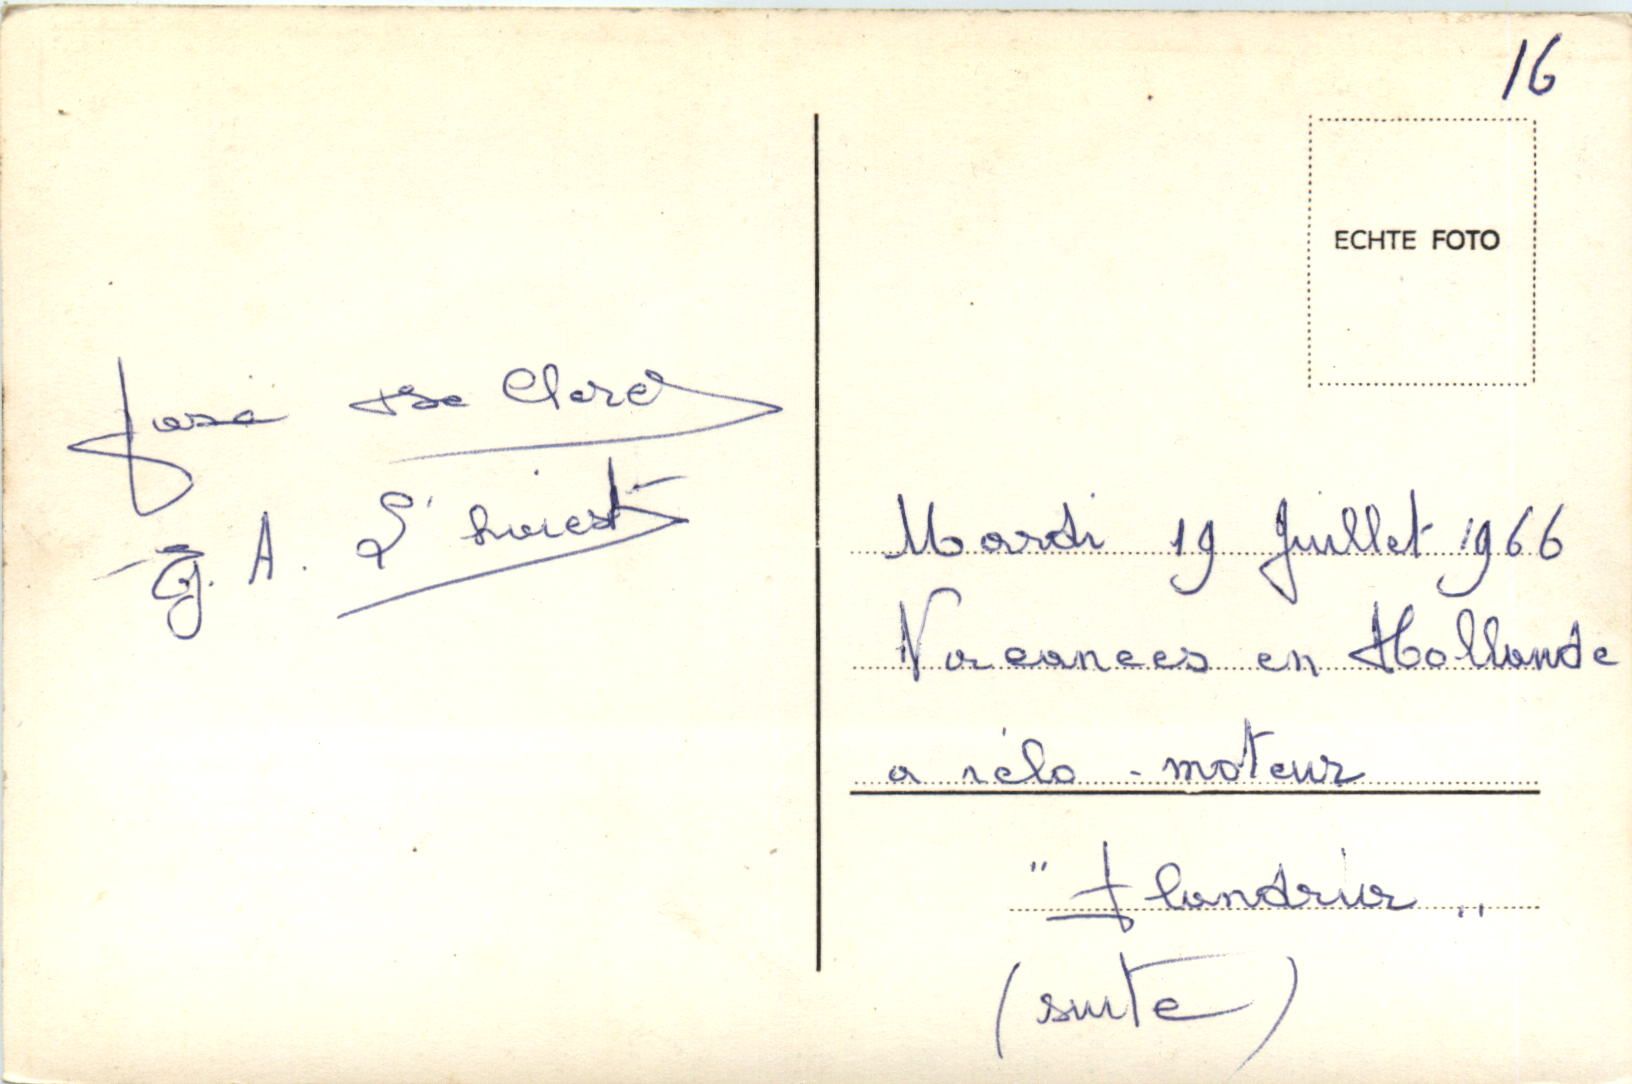 16
ECHTE FOTO
José De Clerc
J. A. L'hoiest
Mardi 19 Juillet 1966
Vacances en Hollande
a vélo - moteur
"Flandria"
(suite)